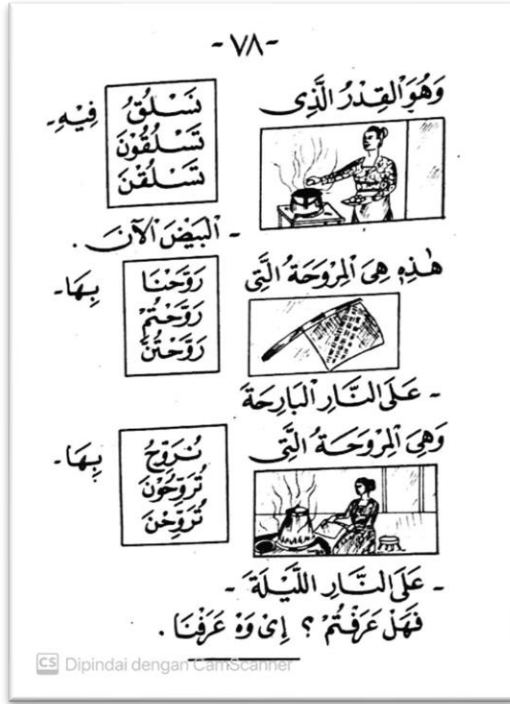 -٧٨-
وَهُوَ الْقِدْرُ الَّذِى
نَسْلُقُ
تَسْلُقُوْنَ
تَسْلُقْنَ
فِيْهِ-
- الْبَيْضَ الْآنَ .
هٰذِهِ هِيَ الْمِرْوَحَةُ الَّتِى
رَوَّحْنَا
رَوَّحْتُمْ
رَوَّحْتُنَّ
بِهَا-
- عَلَى النَّارِ الْبَارِحَةَ
وَهِيَ الْمِرْوَحَةُ الَّتِى
نُرَوِّحُ
تُرَوِّحُوْنَ
تُرَوِّحْنَ
بِهَا-
- عَلَى النَّارِ اللَّيْلَةَ -
فَهَلْ عَرَفْتُمْ ؟ اِىْ وَهْ عَرَفْنَا .
CS Dipindai dengan CamScanner